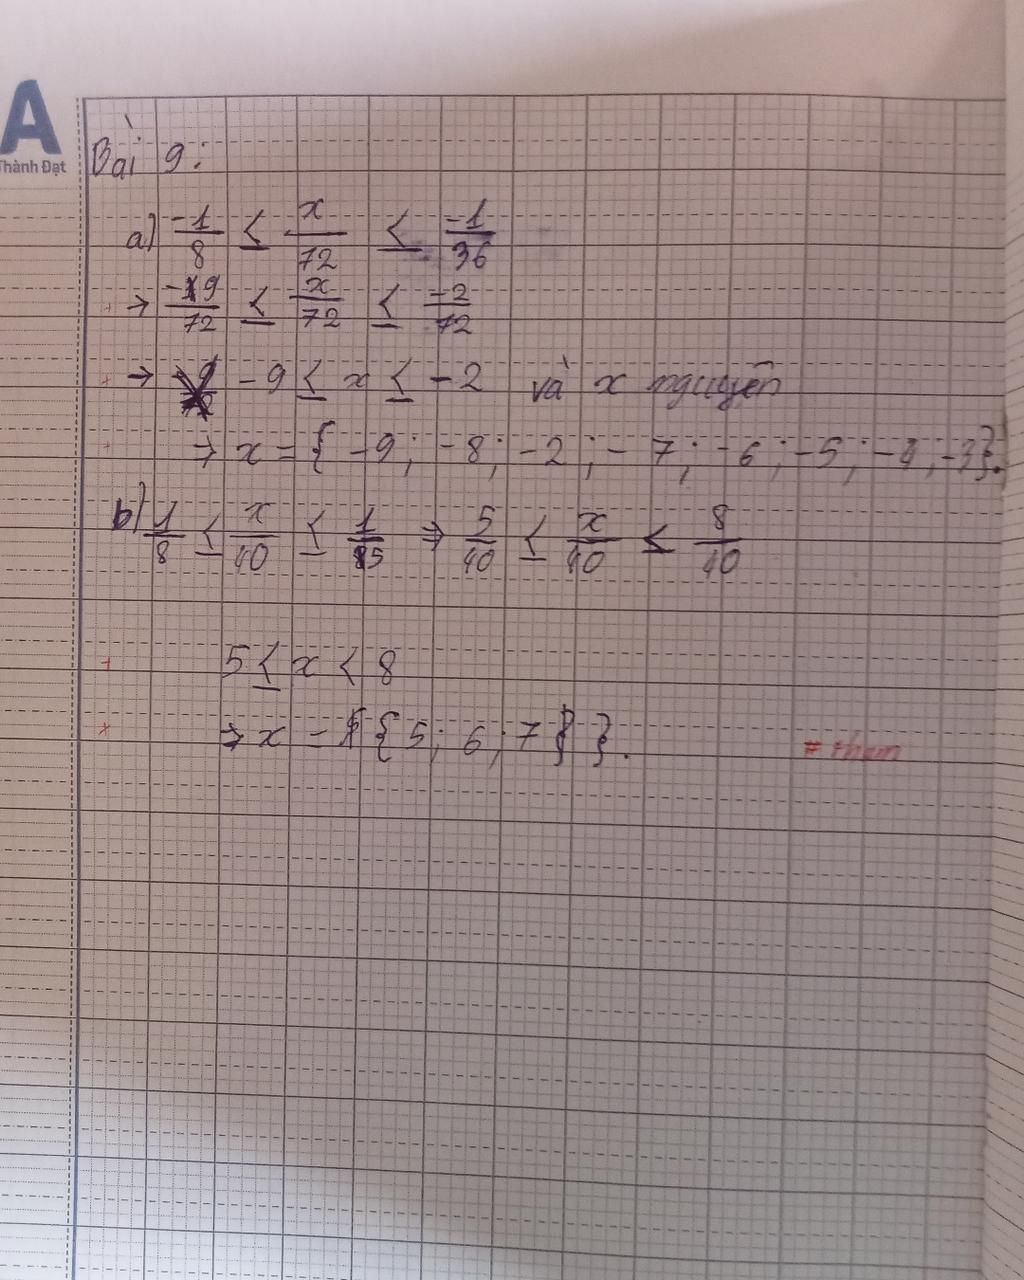 A
Thành Đạt
Bài 9:
a) -1/8 ≤ x/72 ≤ -1/36
→ -9/72 ≤ x/72 ≤ -2/72
→ -9 ≤ x ≤ -2 và x nguyên
→ x = { -9; -8; -2; -7; -6; -5; -4; -3}.
b) 1/8 ≤ x/40 ≤ 1/5 ⇒ 5/40 ≤ x/40 ≤ 8/40
5 ≤ x < 8
→ x = { 5; 6; 7 }.